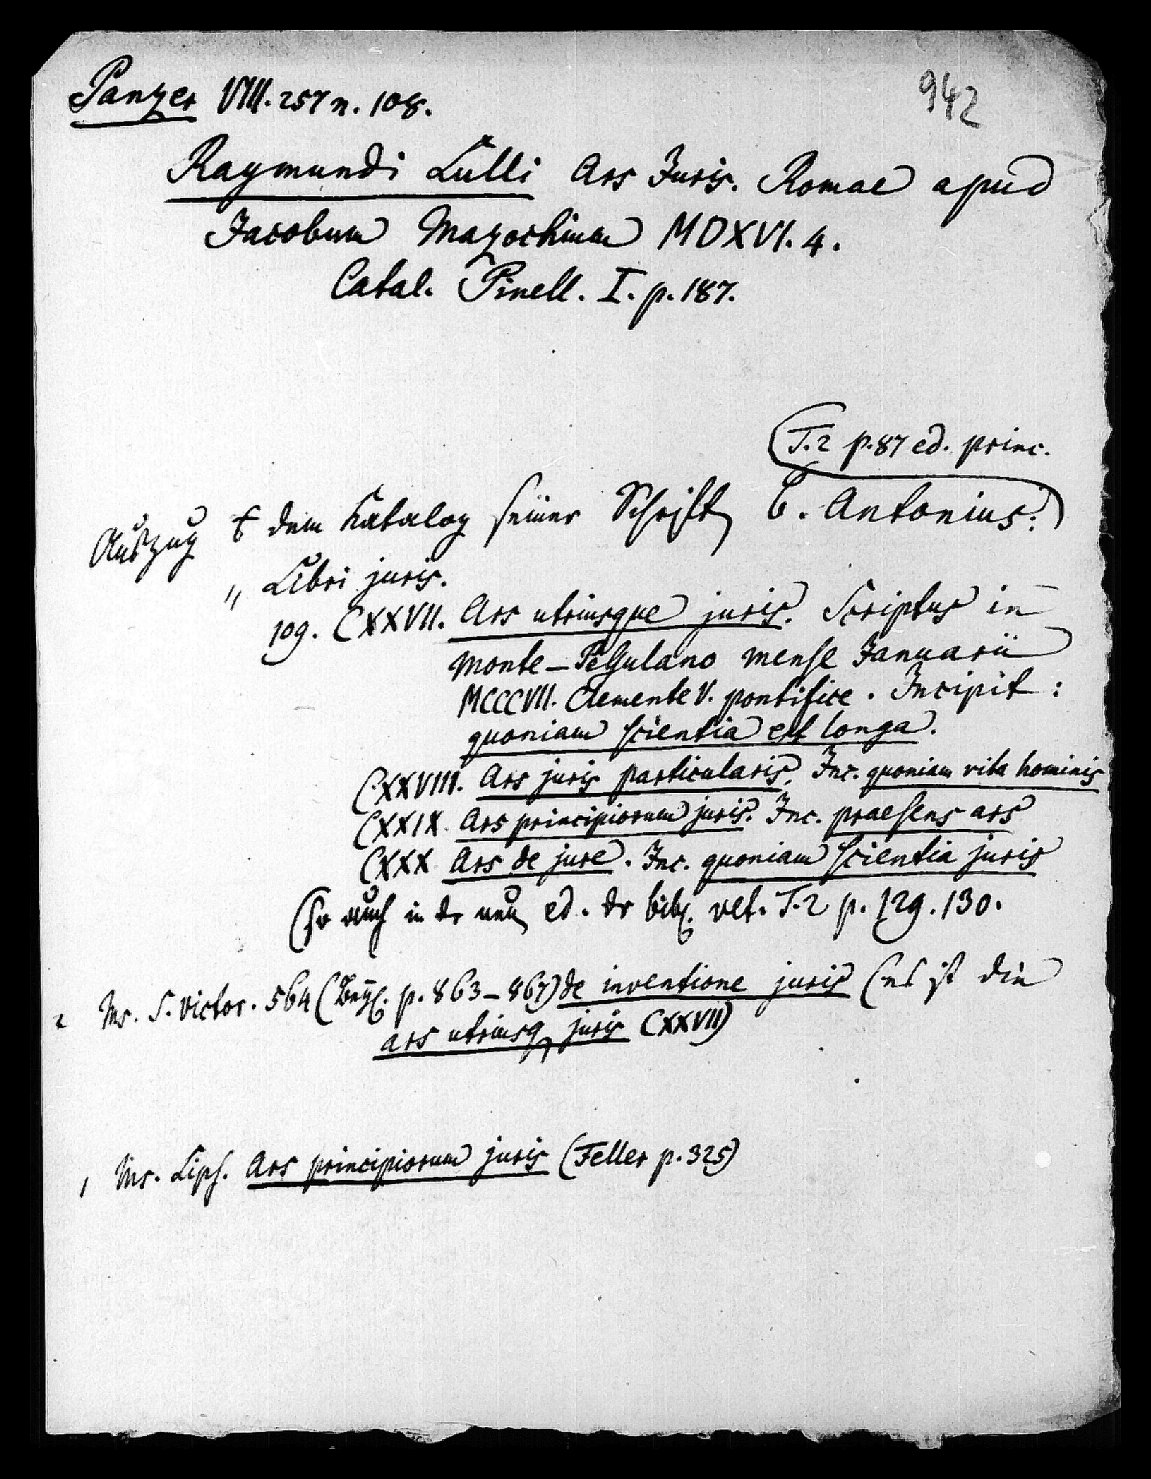 942
Panzer VIII. 257 n. 108.
Raymundi Lulli Ars Juris. Romae apud
Jacobum Mazochium MDXVI. 4.
Catal. Pinell. I. p. 187.
(T. 2 p. 87 ed. princ.
Auszug dem Katalog seiner Schriften b. Antonius:)
„ Libri juris.
109. CXXVII. Ars utriusque juris. Scriptus in
monte-Pessulano mense Januarii
MCCCVII. Clemente V. pontifice. Incipit:
quoniam scientia est longa.
CXXVIII. Ars juris particularis. Inc. quoniam vita hominis
CXXIX. Ars principiorum juris. Inc. praesens ars
CXXX Ars de jure. Inc. quoniam scientia juris
(so auch in der neuen ed. der bibl. vet. T. 2 p. 129. 130.
2 Ms. S. Victor. 564 ( p. 863-867) de inventione juris (es ist die
ars utriusq juris CXXVII)
1 Ms. Lips. Ars principiorum juris (Feller p. 325)